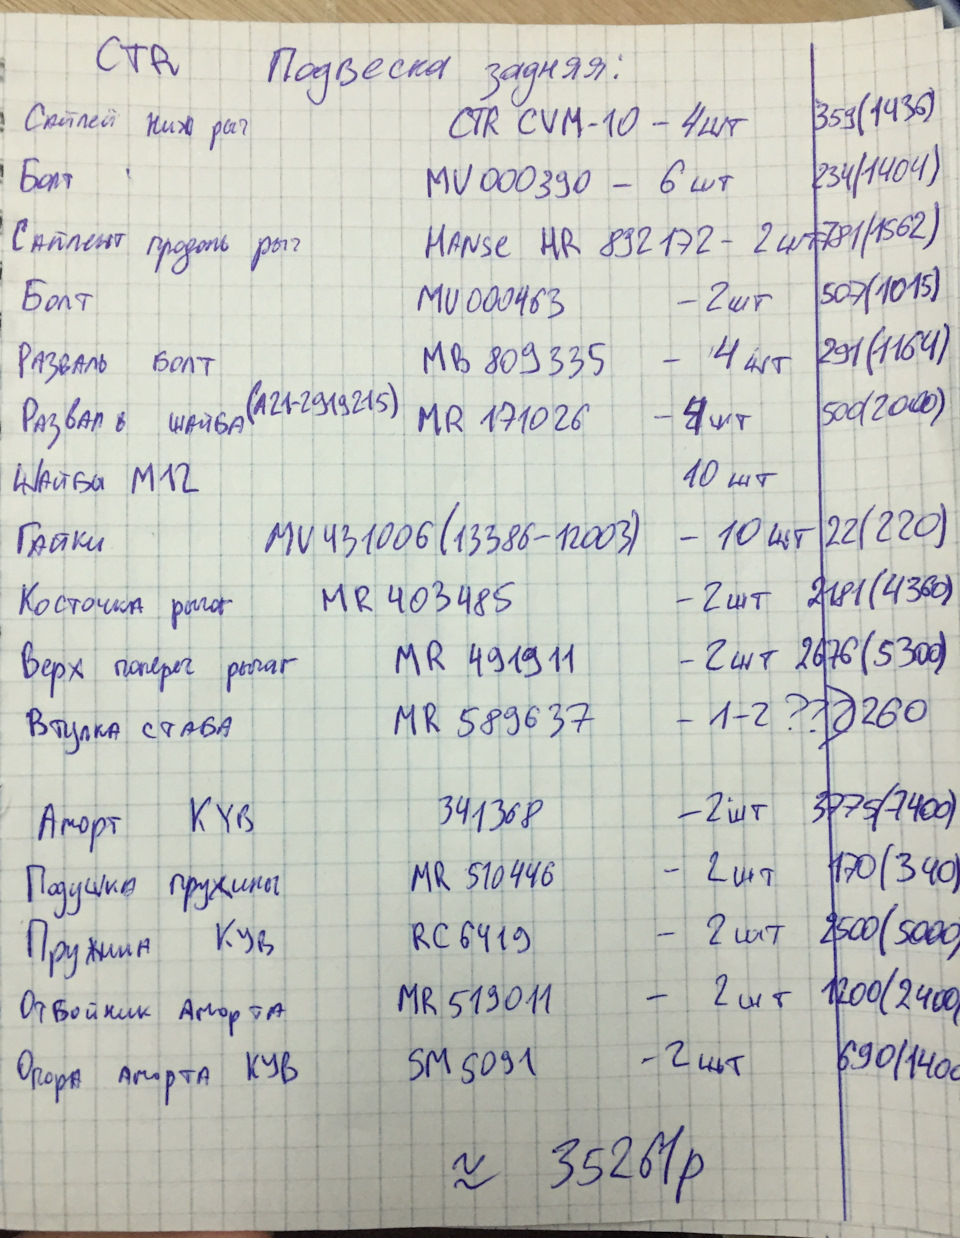 CTR Подвеска задняя:
Сайлей ниж рыч CTR CVM-10 - 4шт 359(1436)
Болт MV000390 - 6 шт 234(1404)
Сайлент продоль рыч HANSE HR 892172 - 2шт 781(1562)
Болт MV000463 - 2шт 507(1015)
Разваль болт MB 809335 - 4 шт 291(1164)
Разваль шайба (A21-2919215) MR 171026 - 4шт 500(2000)
Шайбы M12 10 шт
Гайки MV431006(13386-12003) - 10шт 22(220)
Косточка рычаг MR403485 - 2шт 2181(4360)
Верх попереч рычаг MR 491911 - 2шт 2676(5300)
Втулка стаба MR 589637 - 1-2 ??? 260
Аморт KYB 341368 - 2шт 3775(7400)
Подушка пружины MR 510446 - 2шт 170(340)
Пружина KYB RC6419 - 2шт 2500(5000)
Отбойник аморта MR519011 - 2шт 1200(2400)
Опора аморта KYB SM5091 - 2шт 690(1400
≈ 35261р